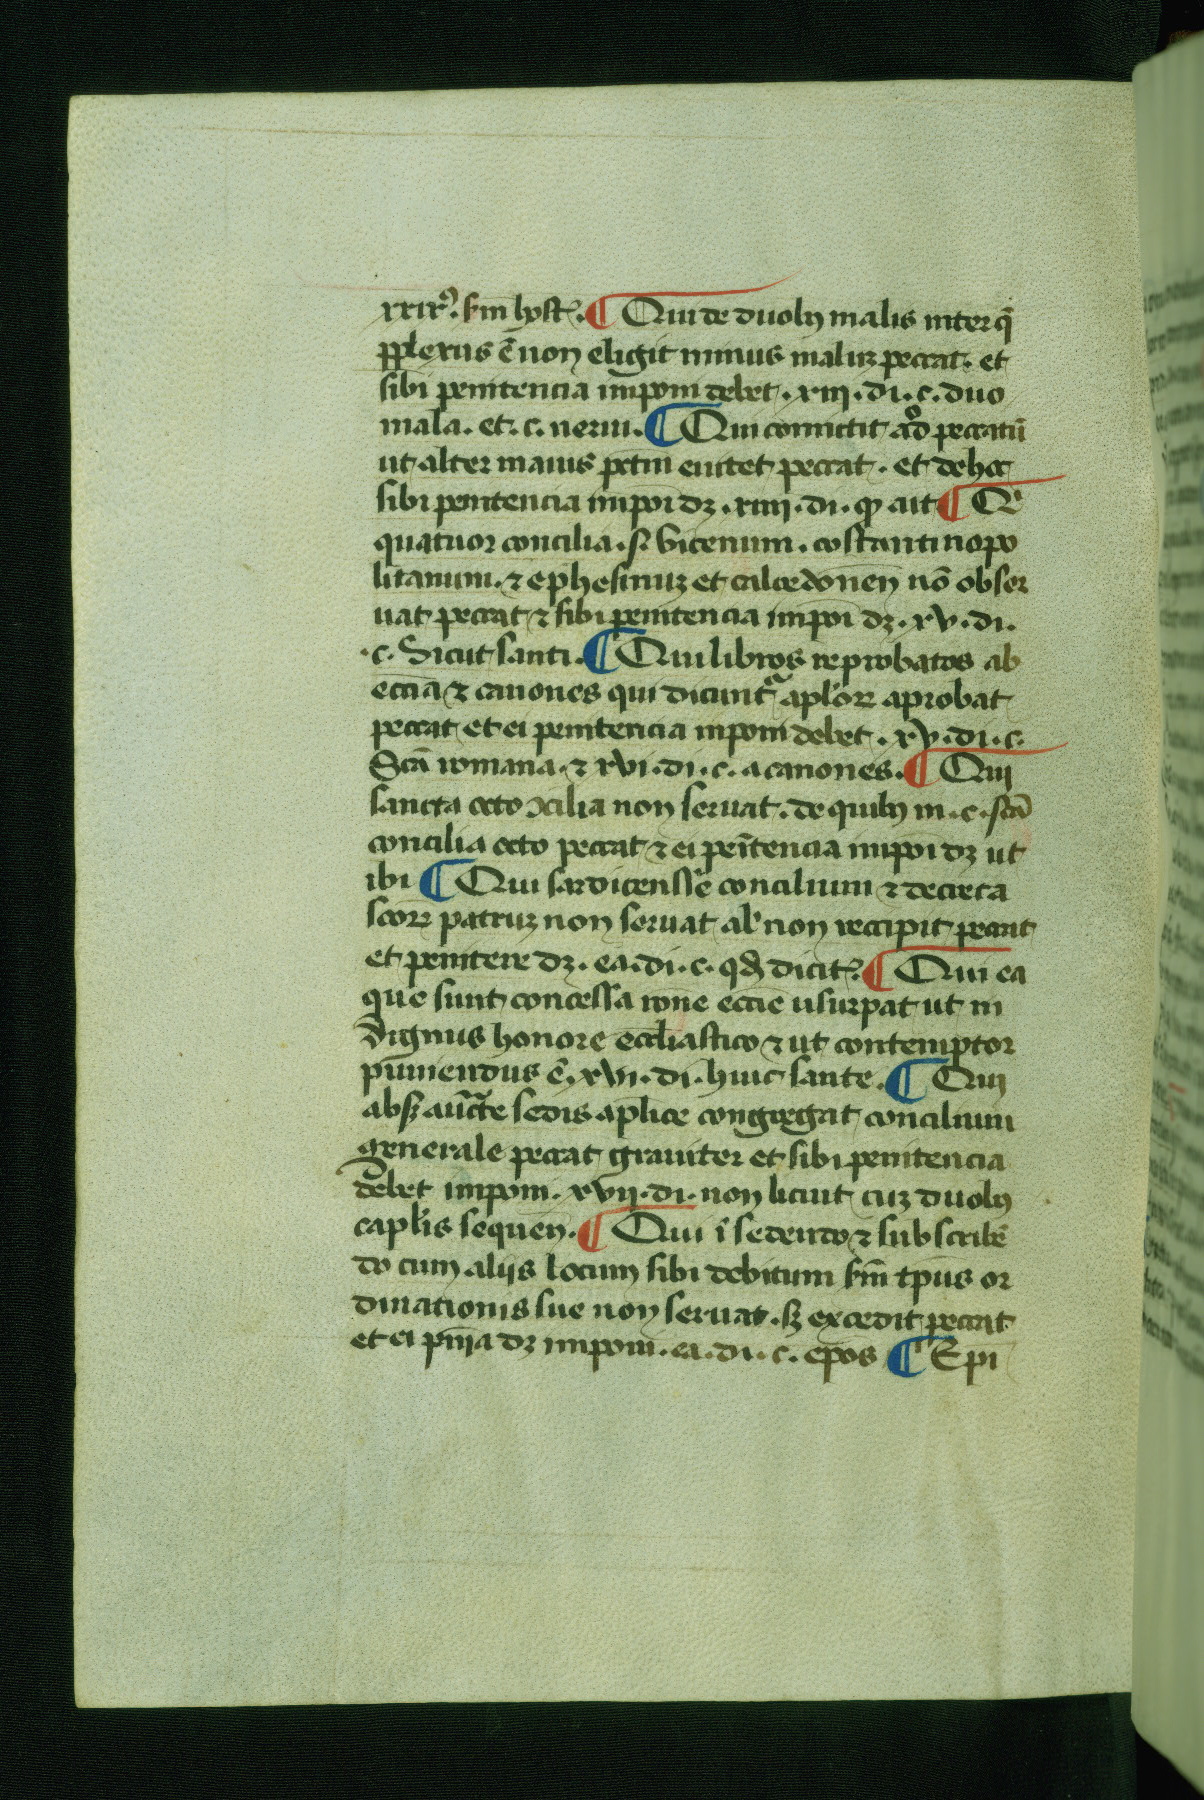 xxix⁹. scḋm host͛. ¶ Qui de duobꝫ malis inter q̄
ꝑplexus ē non eligit minus maluꝫ peccat. et
sibi penitencia imponi debet. xiii. di. c. duo
mala. et. c. nerui. ¶ Qui comictit aͦd peccatū
ut alter maius pctm̄ euitet peccat. et de hoc
sibi penitencia impoī dꝫ. xiiii. di. qͩ ait ¶ Qͥ
quatuor concilia. s. Nicenum. costantinopo
litanum. ⁊ ephesinuꝫ et calcedonen̄ nō obser
uat peccat ⁊ sibi penitencia impoī dꝫ. xv. di.
.c. Sicut santi. ¶ Qui libros reprobatos ab
eccīa ⁊ canones qui dicunt᷑ apl'oꝝ aprobat
peccat et ei penitencia inponi debet. xv. di. c.
Scā romana. ⁊ xvi. di. c. a canones. ¶ Qui
sancta octo ↄcilia non seruat. de quibꝫ in. c. sctā
concilia octo peccat ⁊ ei penītencia impoī dꝫ ut
ibi ¶ Qui sardicenss̄e concilium ⁊ decreta
scōꝝ patruꝫ non seruat al' non reccipit peccat
et penitere dꝫ. ea. di. c. qd̄ dicit͛. ¶ Qui ea
que sunt concessa rōne eccīe usurpat ut in
dignus honore eccl̄iastico ⁊ ut contemptor
puniendus ē. xvi. di. huic sante. ¶ Qui
absꝫ auc̄te sedis aplice congregat concilium
generale peccat grauiter et sibi penitencia
debet imponi. xvii. di. non licuit cuꝫ duobꝫ
capl'is sequen̄. ¶ Qui ī sedendo ⁊ subscribē
do cum aliis locum sibi debitum scḋm tp̄us or
dinationis sue non seruat. sꝫ excedit peccat
et ei pn̄ia dꝫ imponi. ea. di. c. ep̄os ¶ Epi